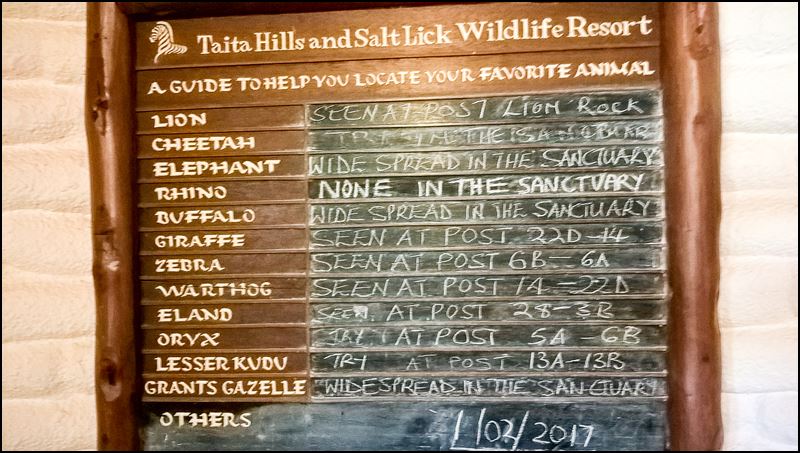 Taita Hills and Salt Lick Wildlife Resort
A GUIDE TO HELP YOU LOCATE YOUR FAVORITE ANIMAL
LION SEEN AT POST LION ROCK
CHEETAH TRY IN THE
ELEPHANT WIDE SPREAD IN THE SANCTUARY
RHINO NONE IN THE SANCTUARY
BUFFALO WIDE SPREAD IN THE SANCTUARY
GIRAFFE SEEN AT POST 22D-14
ZEBRA SEEN AT POST 6B-6A
WARTHOG SEEN AT POST 14-22D
ELAND SEEN AT POST 28-3B
ORYX TRY AT POST 5A-6B
LESSER KUDU TRY AT POST 13A-13B
GRANTS GAZELLE WIDESPREAD IN THE SANCTUARY
OTHERS 1/02/2017